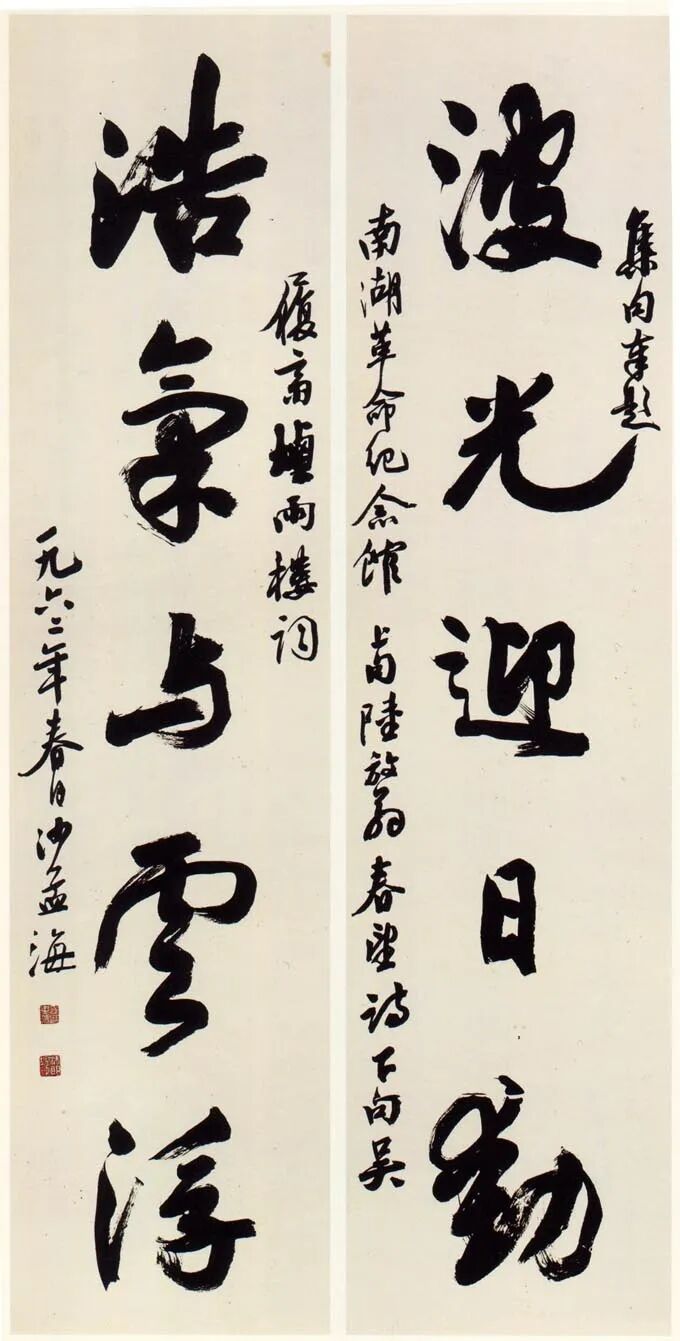 集句奉題
波光迎日動
南湖革命纪念館 上句陸放翁春望詩下句吴
履齋煙雨樓詞
浩氣与雲浮
一九六二年春日沙孟海